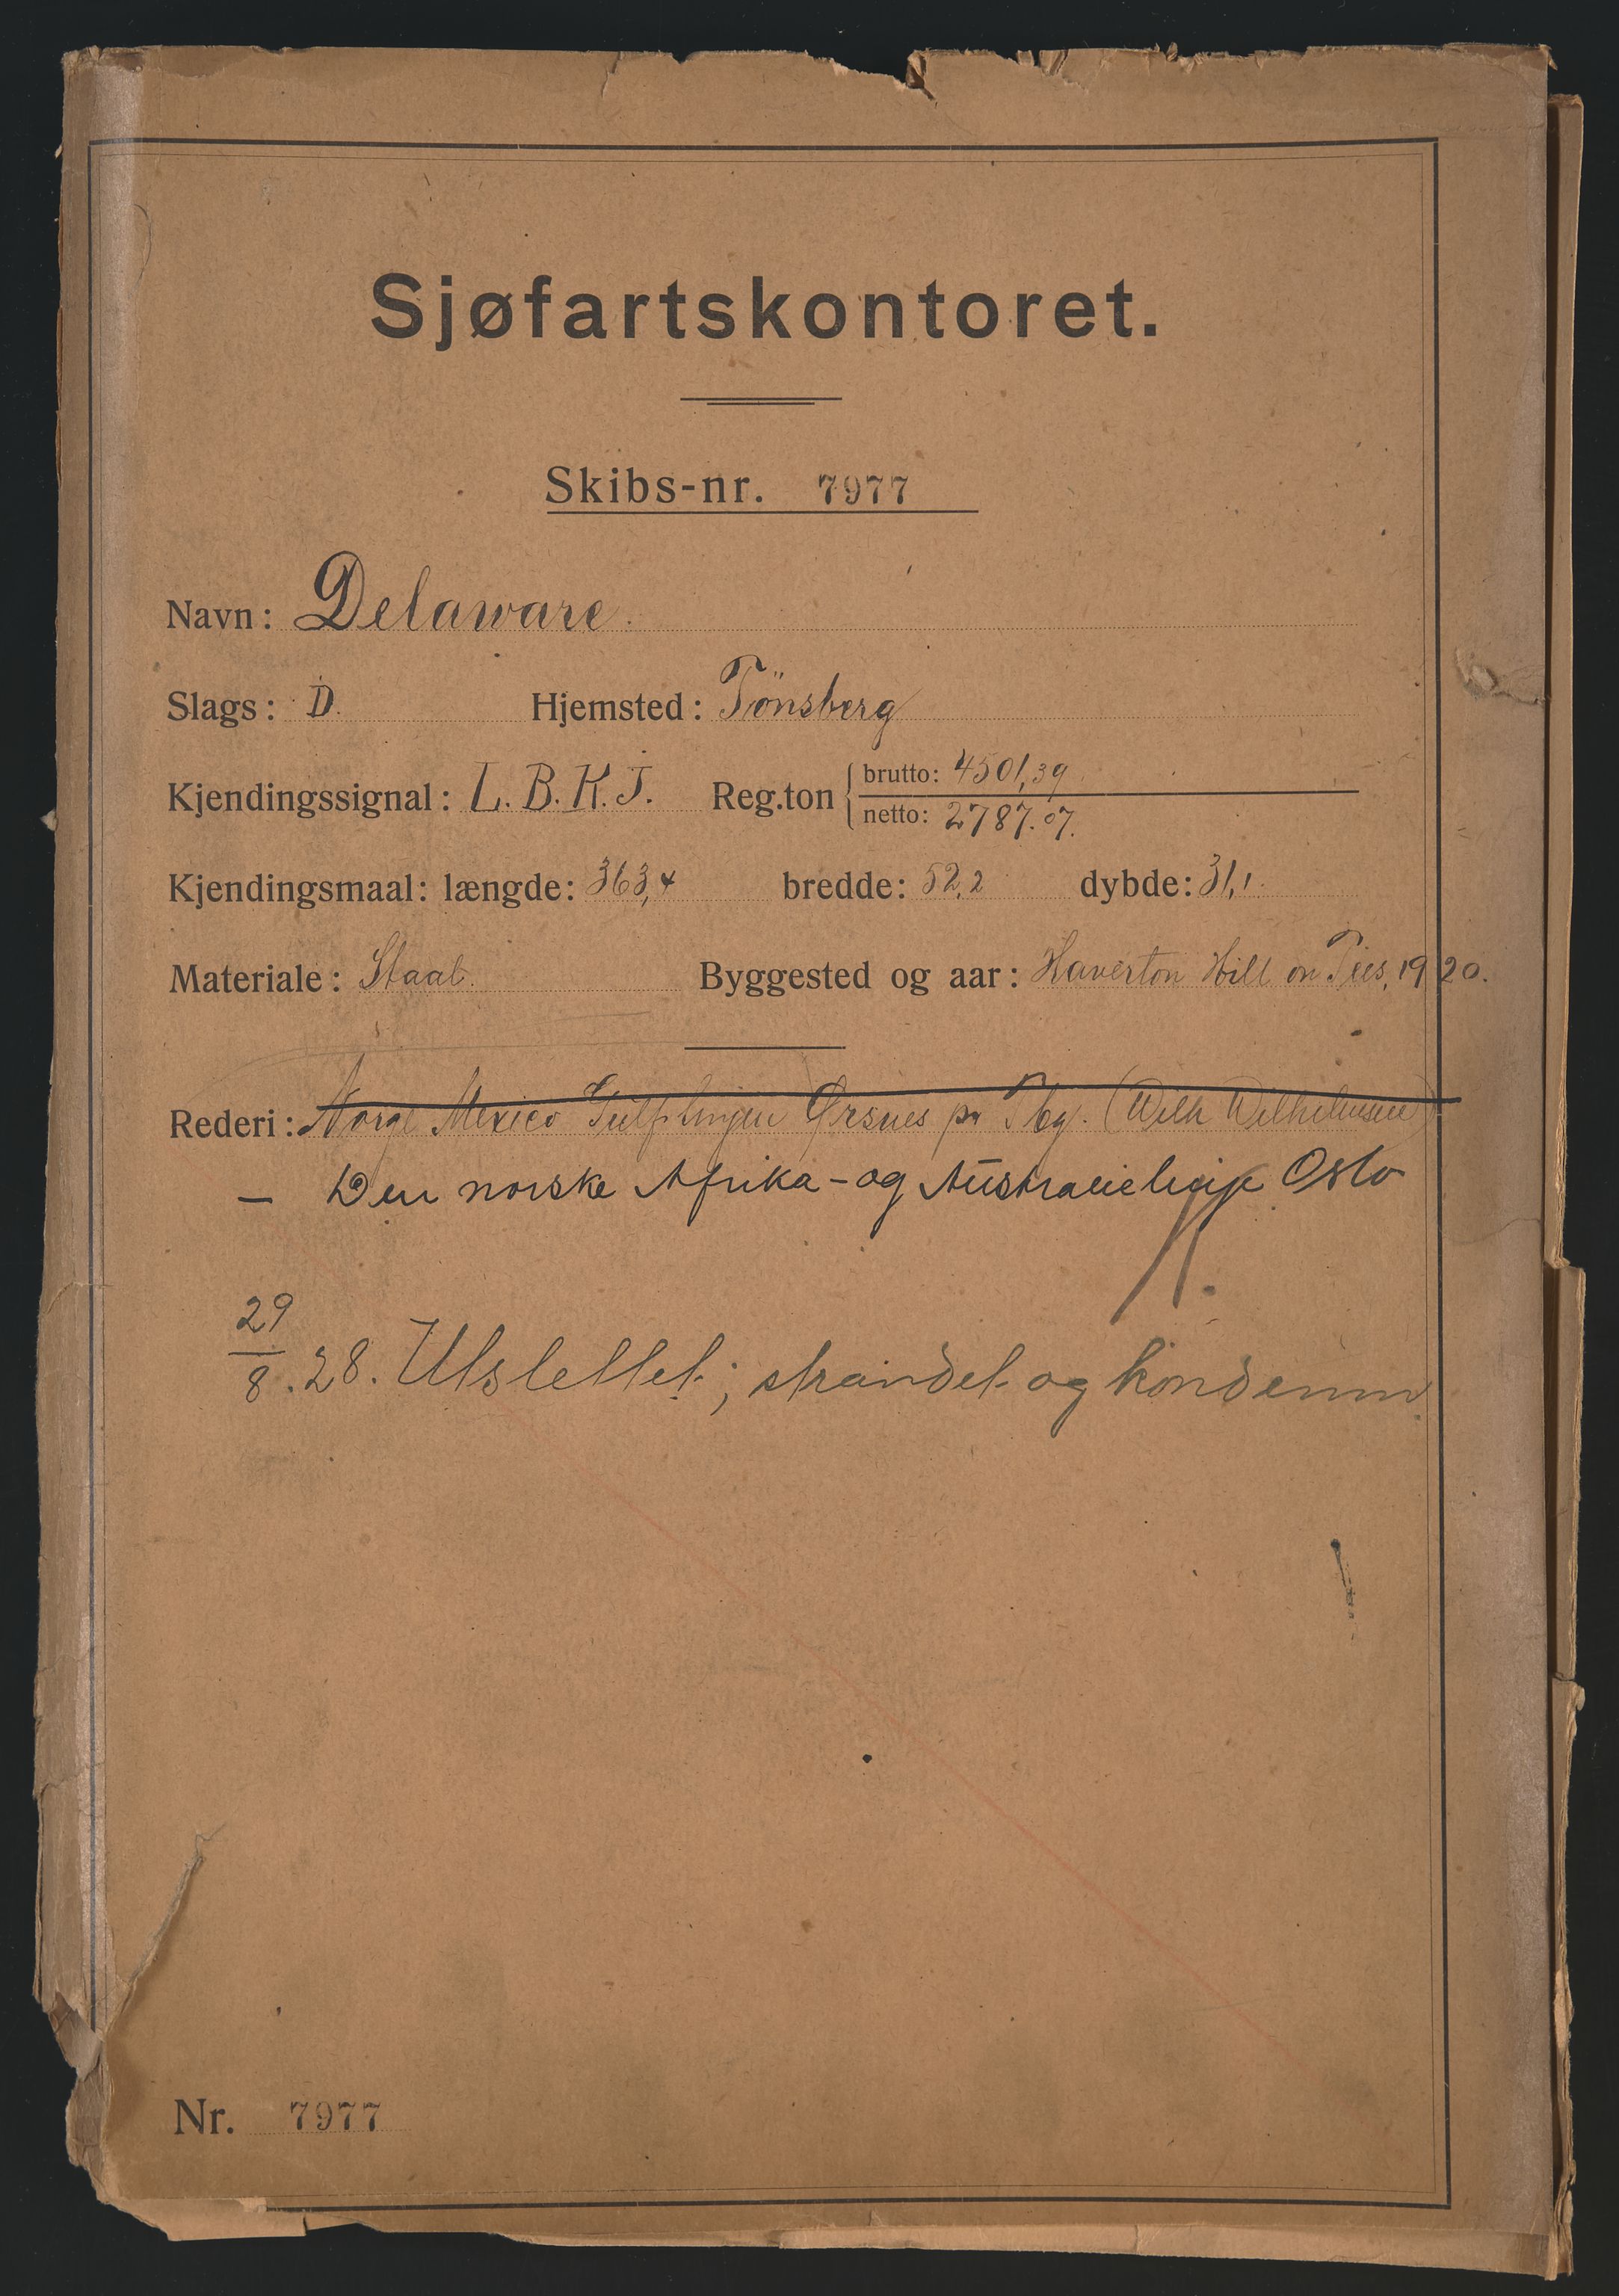 Sjøfartskontoret.
Skibs-nr. 7977
Navn: Delaware.
Slags: D. Hjemsted: Tönsberg
Kjendingssignal: L. B. K. J. Reg.ton brutto: 4501,39
netto: 2787.07.
Kjendingsmaal: længde: 363,4 bredde: 52,2 dybde: 31,1.
Materiale: Staal. Byggested og aar: Haverton Hill on Tees, 1920.
Rederi: Norge Mexico Gulf Linjen Ørsnes pr Tbg. (Wilh Wilhelmsen)
— Den norske Afrika- og Australielinje Oslo
29/8.28. Utslettet; strandet og kondemn.
Nr. 7977